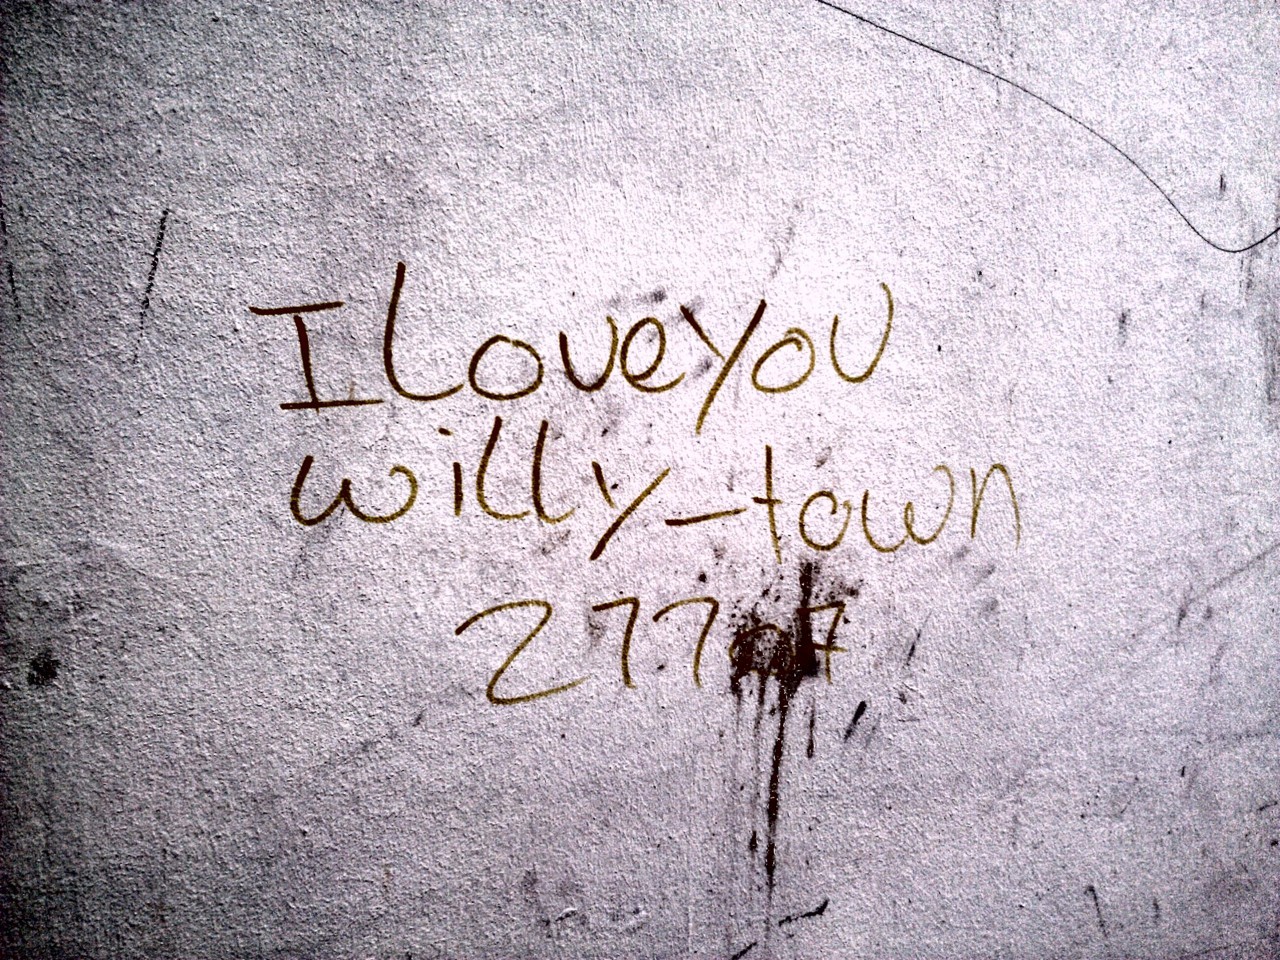 I Love you
willy-town